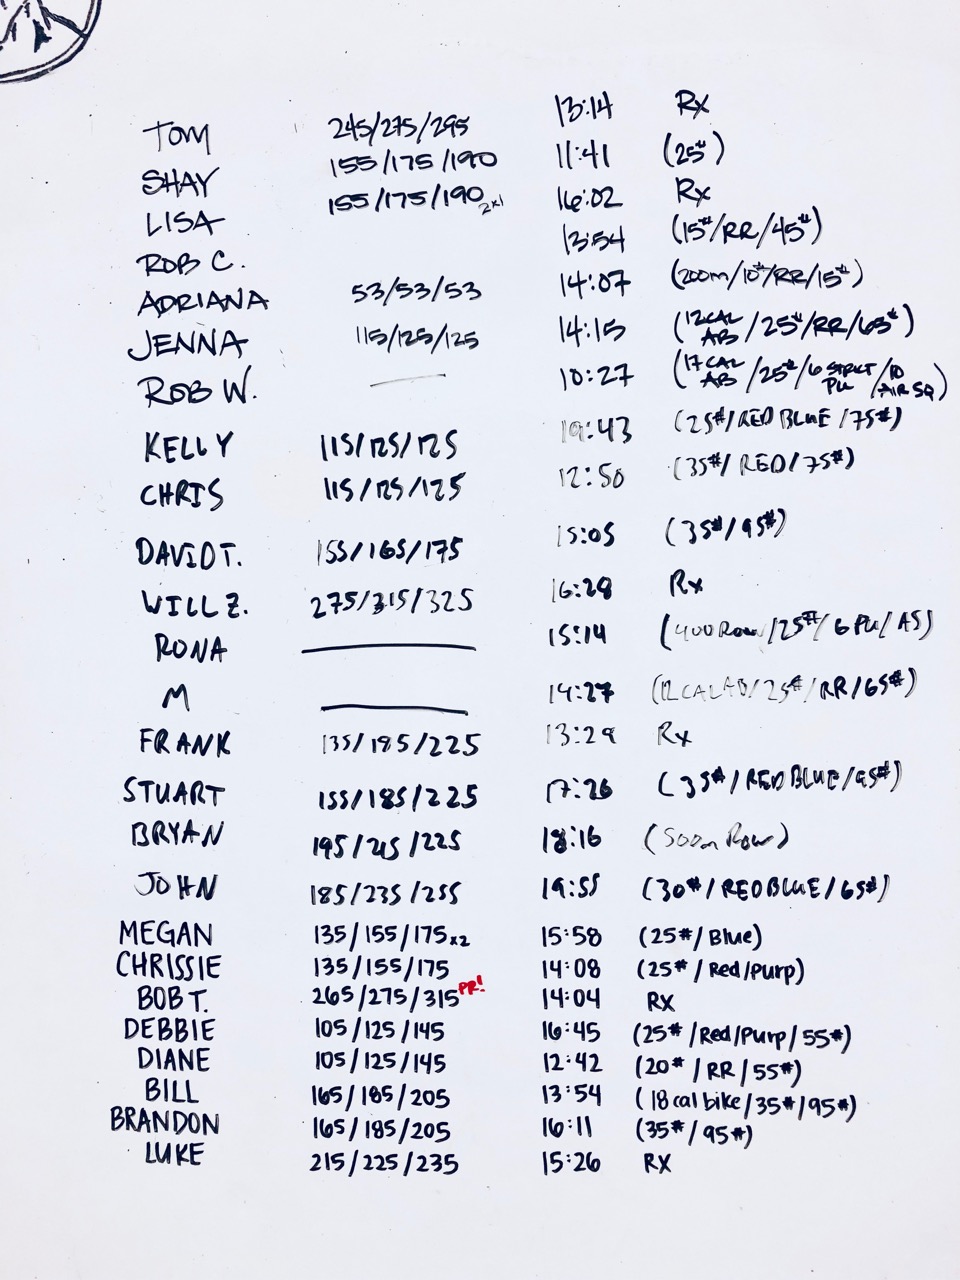 TOM 245/275/295 13:14 Rx
SHAY 155/175/190 11:41 (25#)
LISA 155/175/190 2x1 16:02 Rx
ROB C. 13:54 (15#/RR/45#)
ADRIANA 53/53/53 14:07 (200m/10#/RR/15#)
JENNA 115/125/125 14:15 (12 CAL AB/25#/RR/65#)
ROB W. — 10:27 (17 CAL AB/25#/6 STRICT PU/10 AIR SQ)
KELLY 115/125/125 19:43 (25#/RED BLUE/75#)
CHRIS 115/125/125 12:50 (35#/RED/75#)
DAVID T. 155/165/175 15:05 (35#/95#)
WILL Z. 275/315/325 16:28 Rx
RONA — 15:14 (400 Row/25#/6 PU/AS)
M — 14:27 (12 CAL AB/25#/RR/65#)
FRANK 135/185/225 13:29 Rx
STUART 155/185/225 17:26 (35#/RED BLUE/95#)
BRYAN 195/215/225 18:16 (500m Row)
JOHN 185/235/255 19:55 (30#/RED BLUE/65#)
MEGAN 135/155/175 x2 15:58 (25#/Blue)
CHRISSIE 135/155/175 14:08 (25#/Red/Purp)
BOB T. 265/275/315 PR! 14:04 RX
DEBBIE 105/125/145 16:45 (25#/Red/Purp/55#)
DIANE 105/125/145 12:42 (20#/RR/55#)
BILL 165/185/205 13:54 (18 cal bike/35#/95#)
BRANDON 165/185/205 16:11 (35#/95#)
LUKE 215/225/235 15:26 RX